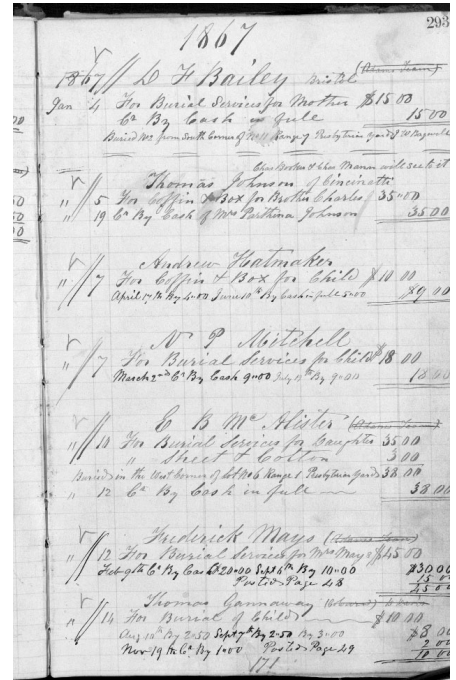 293
1867
1867 // D F Bailey Bristol
Jan 4 For Burial Services for Mother $15 00
Cr By Cash in full 15 00
Buried No from South Corner of No 11 Range of Presbyterian Yard
Chas Brown & Chas Mann will see to it
Thomas Johnson of Cincinetti
" // 5 For Coffin & Box for Brother Charles 35"00
" 19 Cr By Cash of Mrs Parthina Johnson 35 00
Andrew Hatmaker
" // 7 For Coffin & Box for Child $10 00
April 17th By 4=00 June 10th By Cash in full 5=00 $9 00
N P Mitchell
" // 7 For Burial Services for Child $18 00
March 2nd Cr By Cash 9=00 July 11th By 9=00 18 00
E B McAlister
" // 10 For Burial Services for Daughter 35 00
" Sheet & Cotton 3 00
Buried in the West Corner of Lot No 6 Range 1 Presbyterian Yard 38 00
" 12 Cr By Cash in full 38 00
Frederick Mays
" // 12 For Burial Services for Mrs Mays $45 00
Feb 9th Cr By Cash $20=00 Sept 4th By 10=00 $30 00
Posted Page 48 15 00
45 00
Thomas Gannaway (Colored)
" // 14 For Burial of Child $10 00
Aug 10th By 2=50 Sept 7th By 2=50 By 3=00 $8 00
Nov 19th Cr. By 1=00 Posted Page 49 2 00
10 00